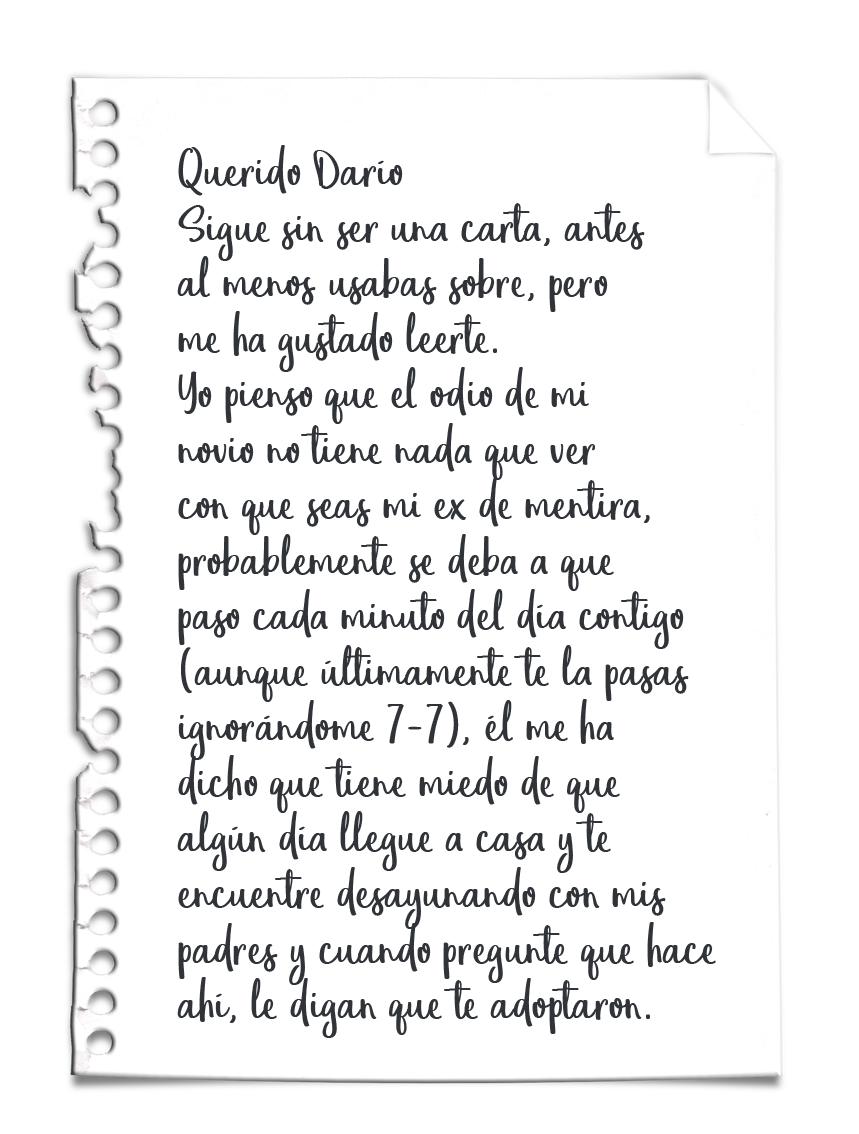 Querido Darío
Sigue sin ser una carta, antes
al menos usabas sobre, pero
me ha gustado leerte.
Yo pienso que el odio de mi
novio no tiene nada que ver
con que seas mi ex de mentira,
probablemente se deba a que
paso cada minuto del día contigo
(aunque últimamente te la pasas
ignorándome 7-7), él me ha
dicho que tiene miedo de que
algún día llegue a casa y te
encuentre desayunando con mis
padres y cuando pregunte que hace
ahí, le digan que te adoptaron.